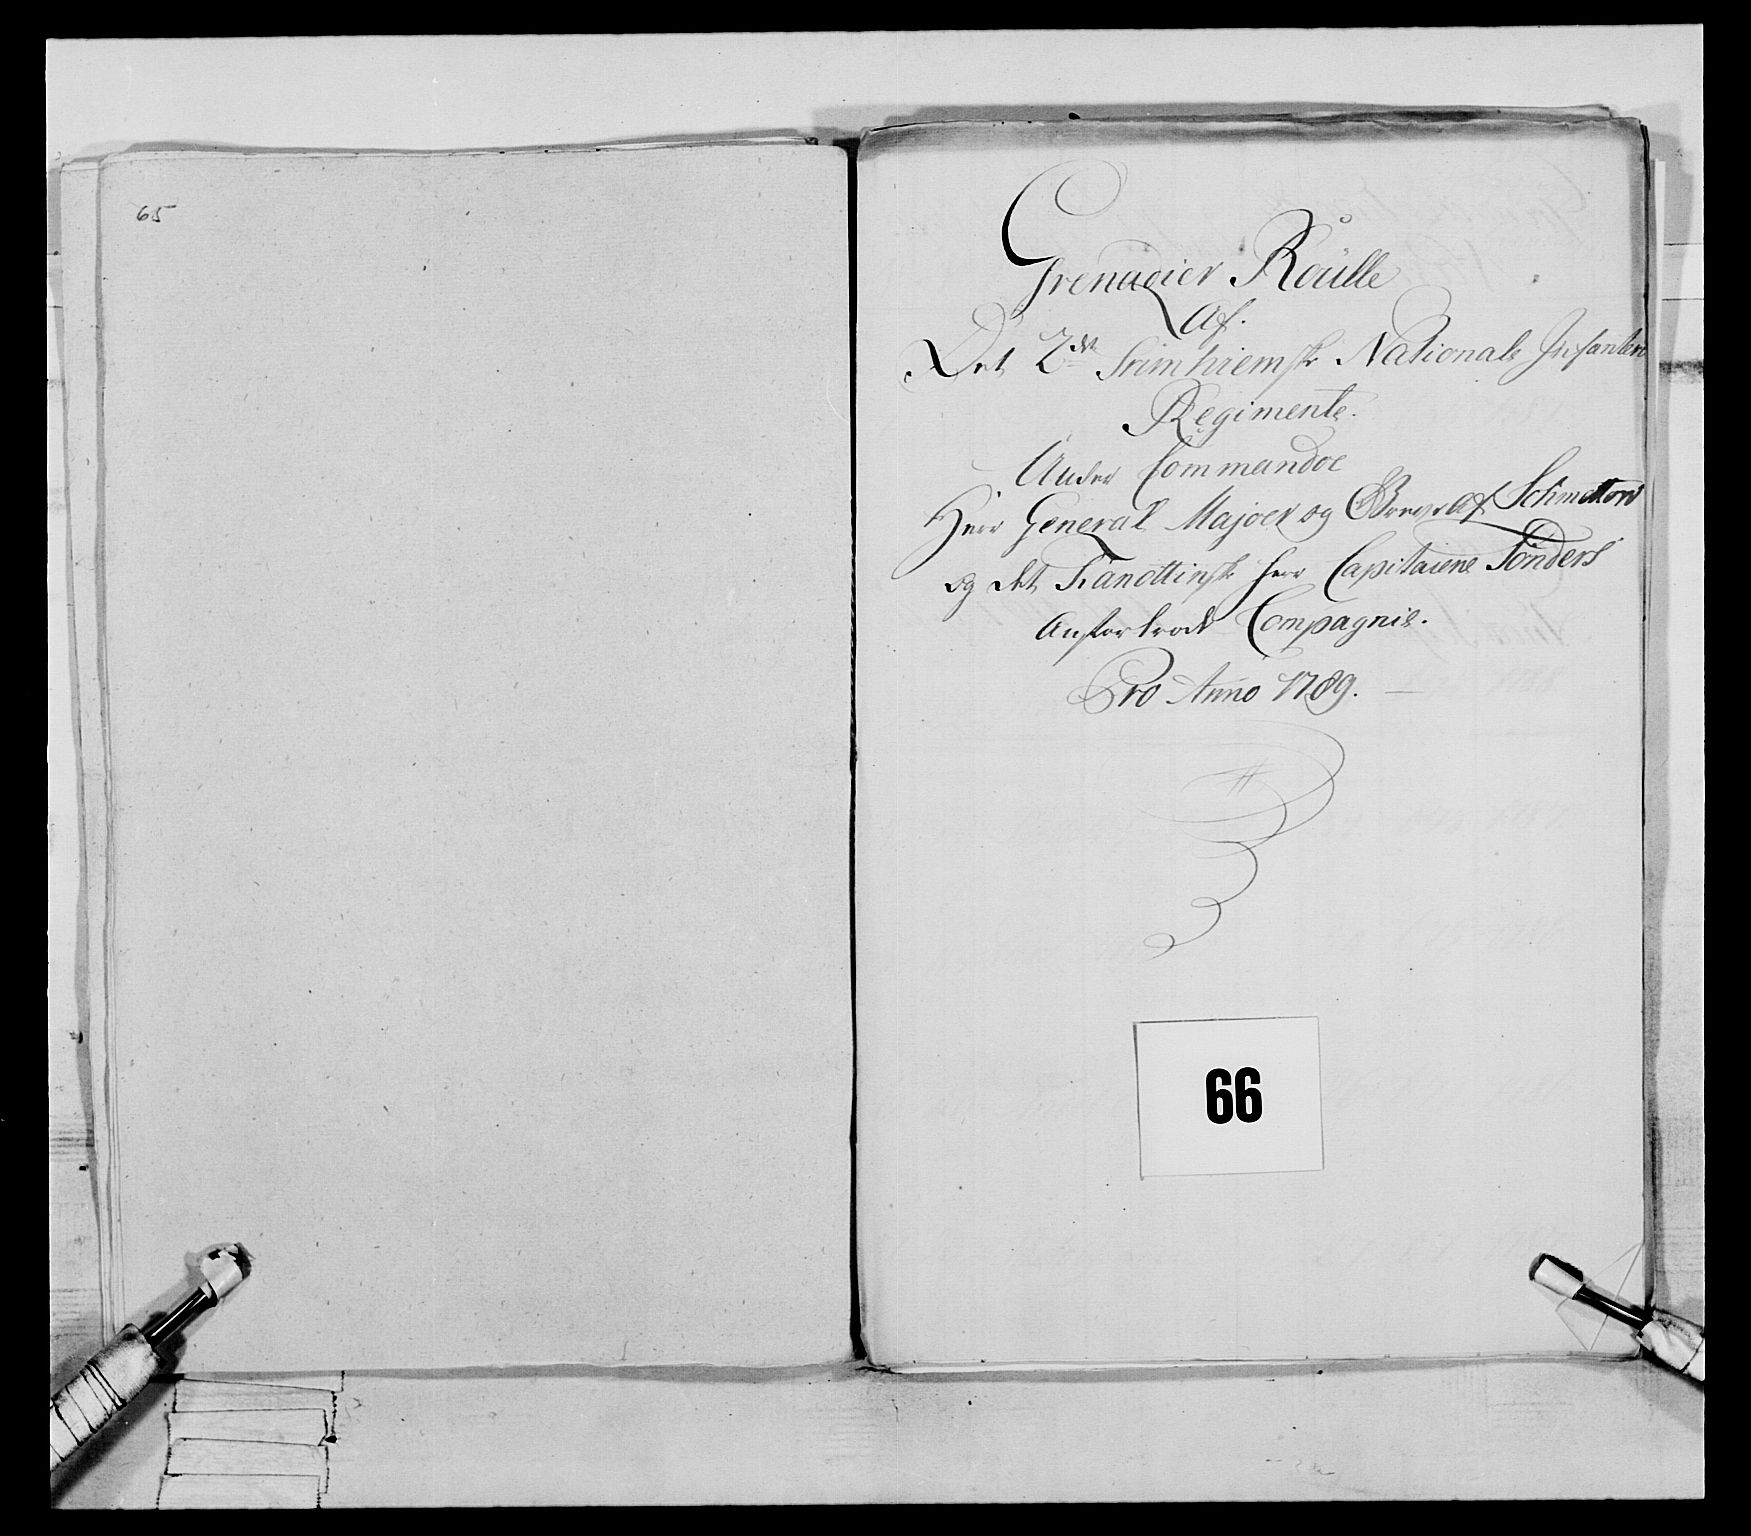 65
Grenadier Roulle
Af.
Det 2det Trundhiemske Nationale Infanterie
Regimente.
Under Commandoe
Herr General Majoer og Grever af Schmettow
og det herr Capitaiene Tönders
Anfortroede Compagnie.
Pro Anno 1789.
66